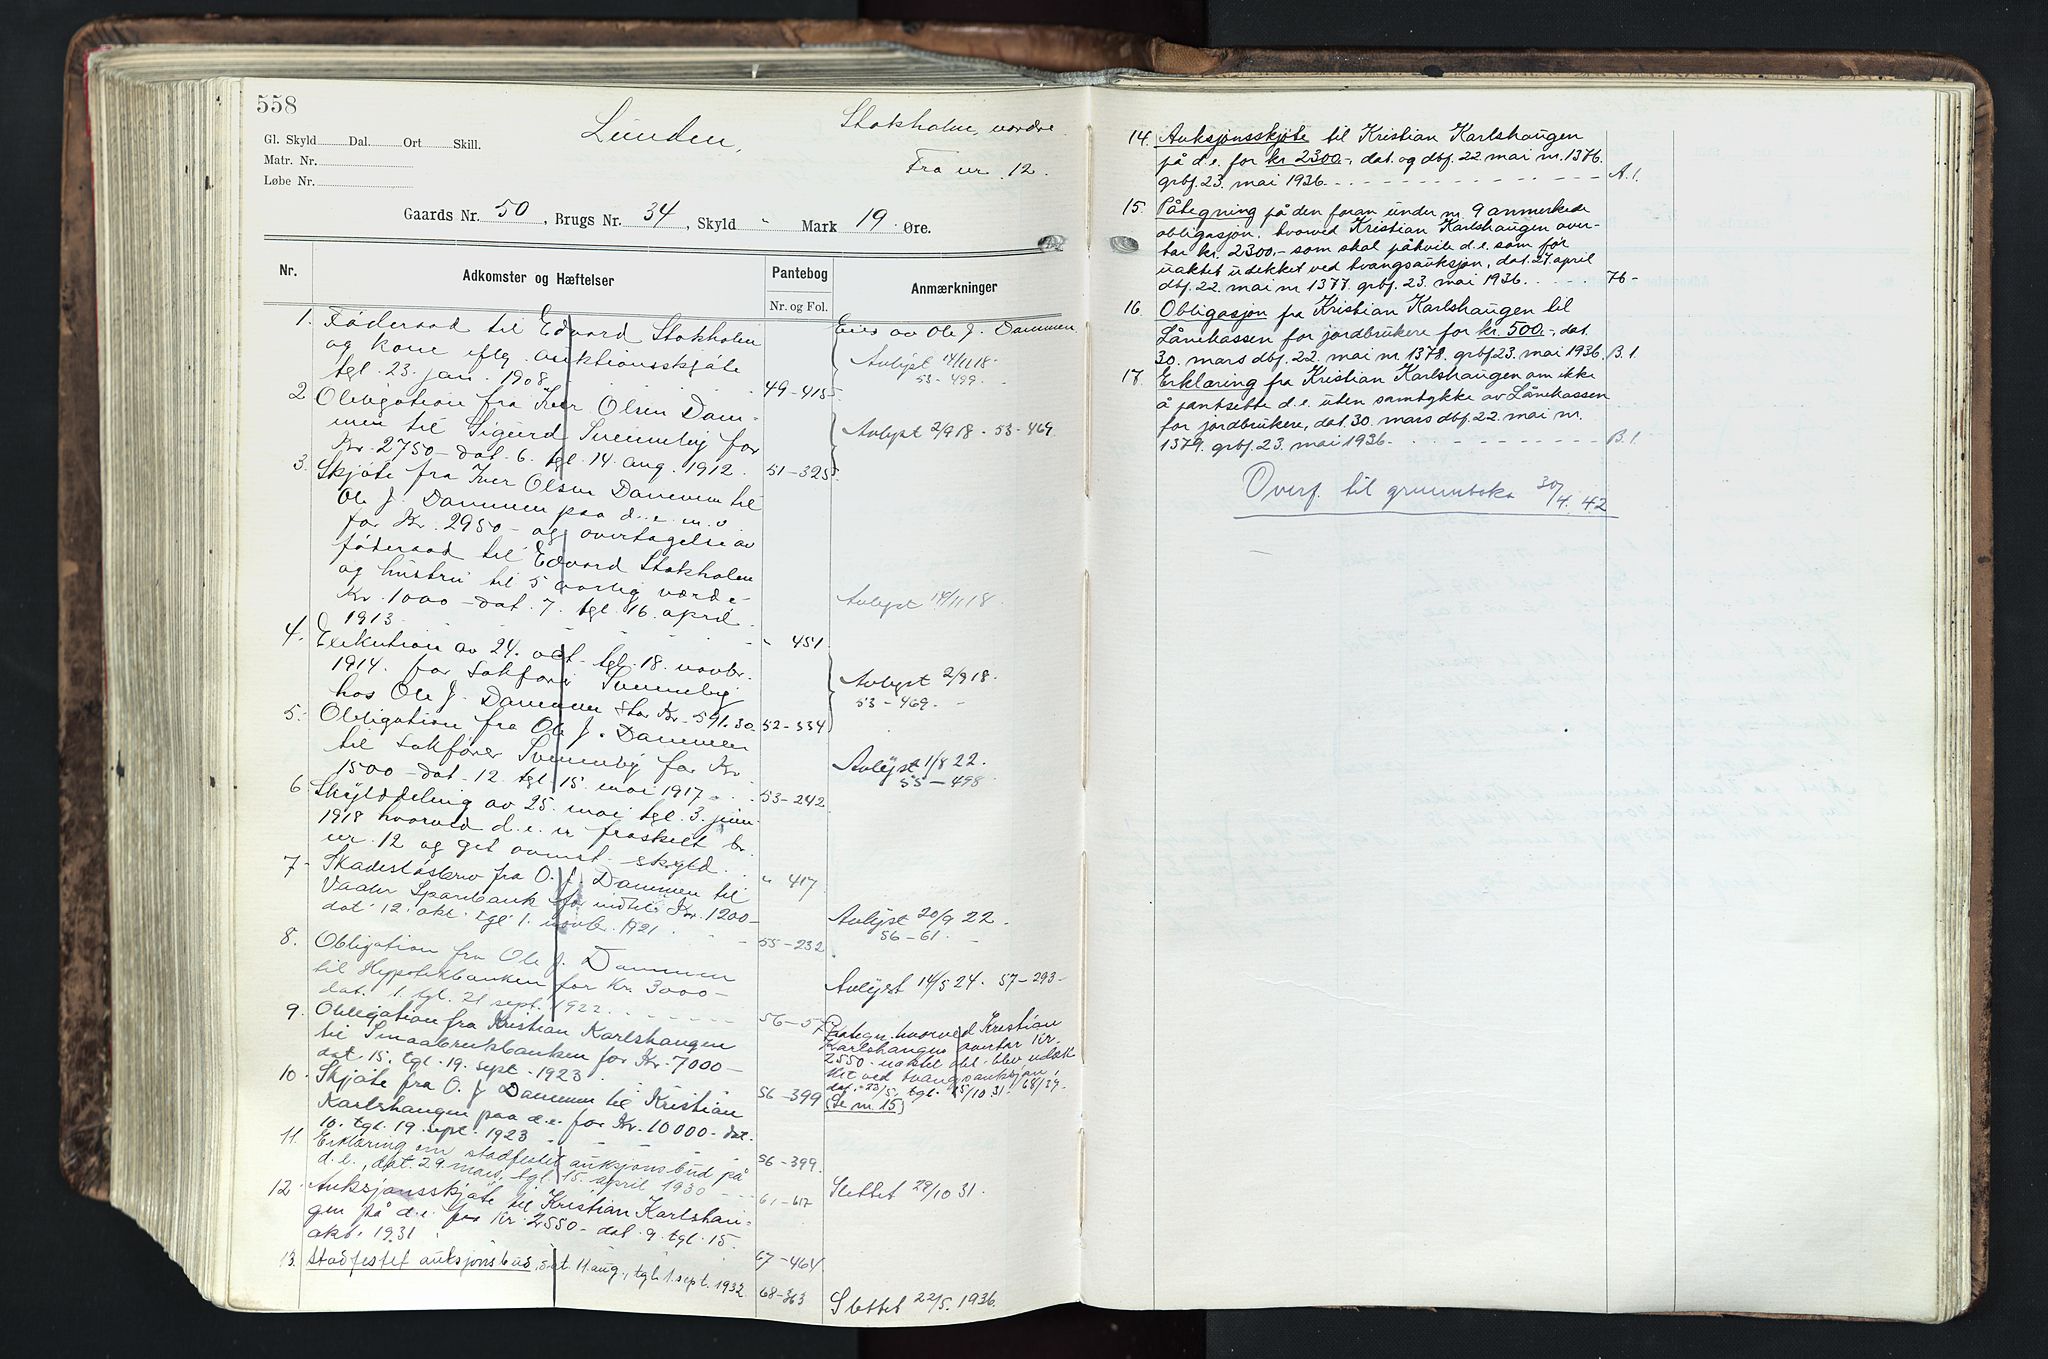 558
Gl. Skyld Dal. Ort Skill.
Matr. Nr.
Løbe Nr.
Lunden,
Stokholm, nordre.
Fra nr. 12.
Gaards Nr. 50, Brugs Nr. 34, Skyld " Mark 19 Øre.
Nr. Adkomster og Hæftelser Pantebog Anmærkninger
Nr. og Fol.
1. Føderaad til Edvard Stokholm
og kone iflg. auktionsskjøte
tgl. 23. jan. 1908. 49-415
Eies av Ole J. Dammen
Avlyst 14/11 18.
53-499.
2. Obligation fra Iver Olsen Dam-
men til Sigurd Svenneby for
Kr. 2750- dat. 6. tgl. 14. aug. 1912. 51-325
Avlyst 2/9 18. 53-469.
3. Skjøte fra Iver Olsen Dammen til
Ole J. Dammen paa d.e. m.v
for Kr. 2950- og overtagelse av
føderaad til Edvard Stokholm
og hustru til 5 aarlig værdi
Kr. 1000- dat. 7. tgl. 16. april
1913. " 451
Avlyst 14/11 18.
4. Exekution av 24. okt. tgl. 18. novbr.
1914. for sakfører Svenneby
hos Ole J. Dammen stor Kr. 591.30 52-334
Avlyst 2/9 18.
53-469.
5. Obligation fra Ole J. Dammen
til sakfører Svenneby for Kr.
1500- dat. 12. tgl. 15. mai 1917. 53-242
Avlyst 1/8 22.
55-498
6. Skylddeling av 25. mai tgl. 3. juni
1918 hvorved d.e. er fraskilt br.
nr. 12 og git ovnst. skyld. " 417
7- Skadesløsbrev fra O. J. Dammen til
Vaaler Sparebank for indtil Kr. 1200-
dat. 12. okt. tgl. 1. novbr. 1921. 55-232
Avlyst 20/9 22.
56-61.
8. Obligation fra Ole J. Dammen
til Hypotekbanken for Kr. 3000-
dat. 1. tgl. 21 sept. 1922. 56-57
Avlyst 14/5 24. 57-293-
9. Obligation fra Kristian Karlshaugen
til Smaabrukbanken for Kr. 7000-
dat. 15. tgl. 19. sept. 1923. 56-399
Paategn. hvorved Kristian
Karlshaugen overtar Kr.
2550- uaktet obl. blev udæk
ket ved tvangsauksjon,
dat. 23/5, tgl. 15/10 31. 68/39-
(Se nr. 15)
10. Skjøte fra O. J Dammen til Kristian
Karlshaugen paa d.e. for Kr. 10000- dat.
10. tgl. 19. sept. 1923 56-399.
11. Erklæring om stadfestet auksjonsbud på
d.e., dat. 29. mars, tgl. 15. april 1930 61-617
Slettet 29/10 31.
12. Auksjonsskjøte til Kristian Karlshau-
gen på d.e. for Kr. 2550- dat. 9. tgl. 15.
okt. 1931 67-464
13. Stadfestet auksjonsbud, dat. 11 aug., tgl. 1. sept. 1932. 68-363
Slettet 22/5. 1936.
14. Auksjonsskjøte til Kristian Karlshaugen
på d.e. for kr 2300.-, dat. og dbf. 22. mai nr. 1376.
grbf. 23. mai 1936. A.1.
15. Påtegning på den foran under nr. 9 anmerkede
obligasjon, hvorved Kristian Karlshaugen over-
tar kr. 2300,- som skal påhvile d.e. som før
uaktet udekket ved tvangsauksjon, dat. 27. april
dbf. 22. mai nr 1377. grbf. 23. mai 1936. 76-
16. Obligasjon fra Kristian Karlshaugen til
Lånekassen for jordbrukere for kr. 500.-, dat.
30. mars dbf. 22. mai nr 1378. grbf. 23. mai 1936. B.1.
17. Erklæring fra Kristian Karlshaugen om ikke
å pantsette d.e. uten samtykke av Lånekassen
for jordbrukere, dat. 30. mars dbf. 22. mai nr.
1379. grbf. 23. mai 1936. B.1.
Overf. til grunnboka 30/4. 42